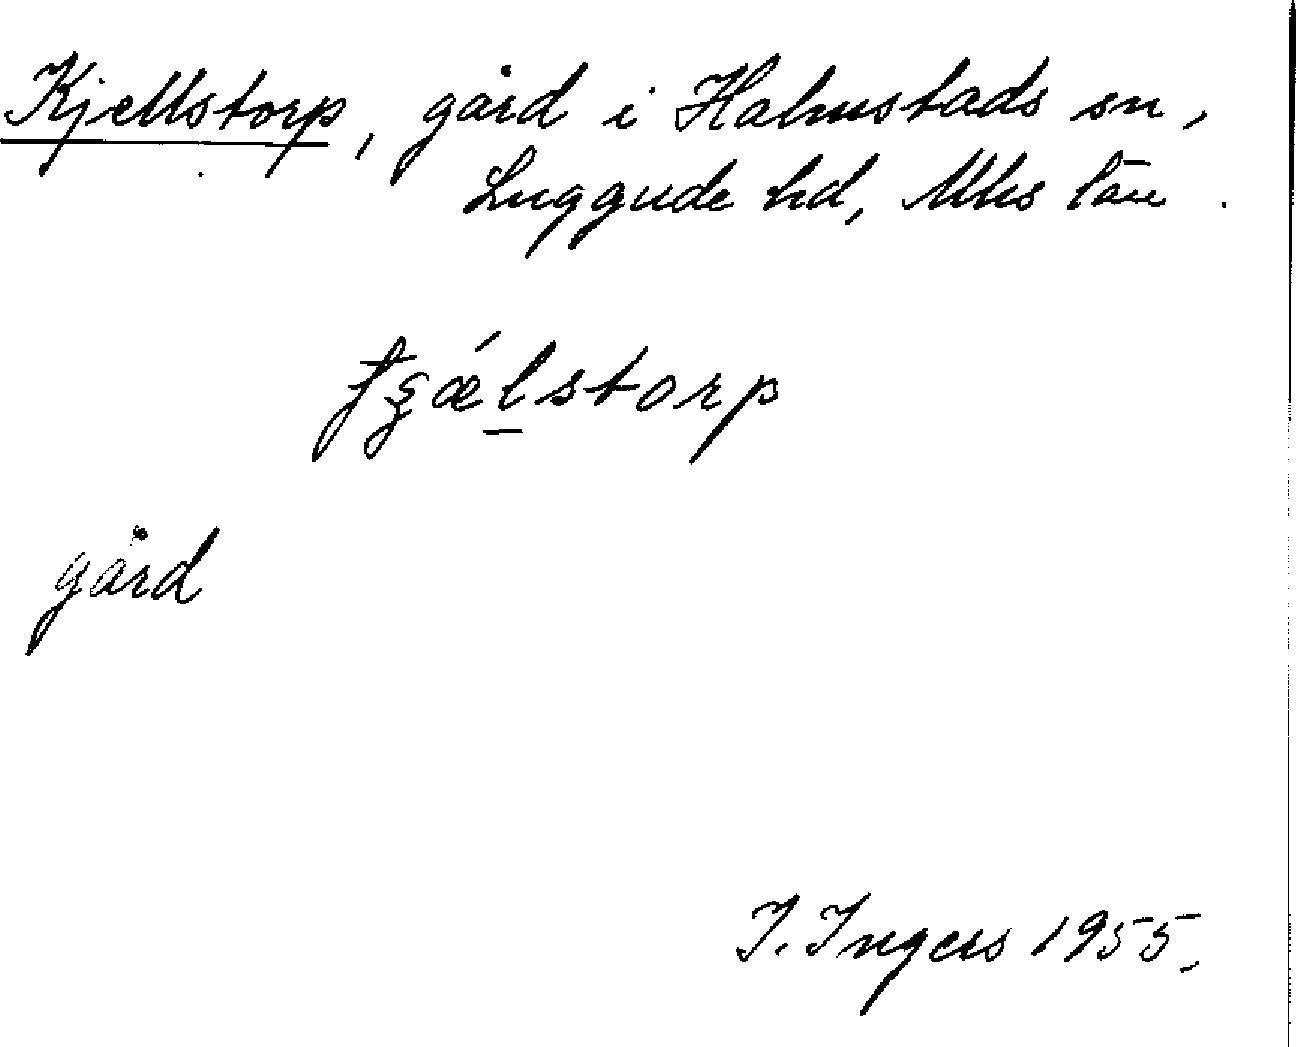 Kjellstorp, gård i Halmstads sn,
Luggude hd, Mhs län.
gård
I. Ingers 1955.